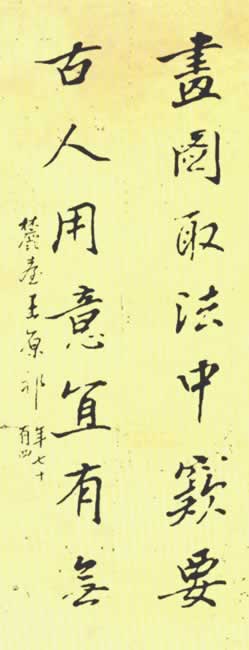 畫圖取法中窾要
古人用意宜有無
麓臺王原祁
年七十
有四